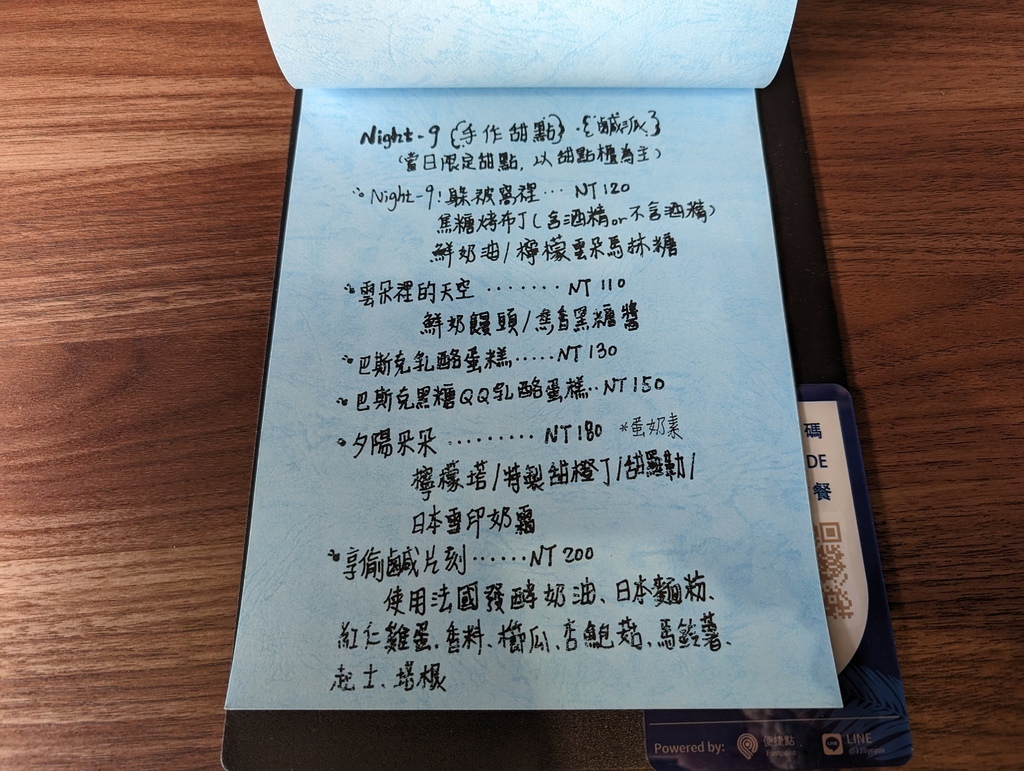 Night-9 {手作甜點}·{鹹派}
(當日限定甜點, 以甜點櫃為主)
Night-9! 躲被窩裡... NT 120
焦糖烤布丁(含酒精or不含酒精)
鮮奶油/檸檬雲朵馬林糖
雲朵裡的天空 ....... NT 110
鮮奶饅頭/焦香黑糖醬
巴斯克乳酪蛋糕.....NT 130
巴斯克黑糖QQ乳酪蛋糕..NT 150
夕陽朵朵 ......... NT 180 *蛋奶素
檸檬塔/特製甜橙丁/甜羅勒/
日本雪印奶霜
享偷鹹片刻......NT 200
使用法國發酵奶油、日本麵粉、
紅仁雞蛋、香料、櫛瓜、杏鮑菇、馬鈴薯、
起士、培根
碼
DE
餐
Powered by: 便捷點 LINE